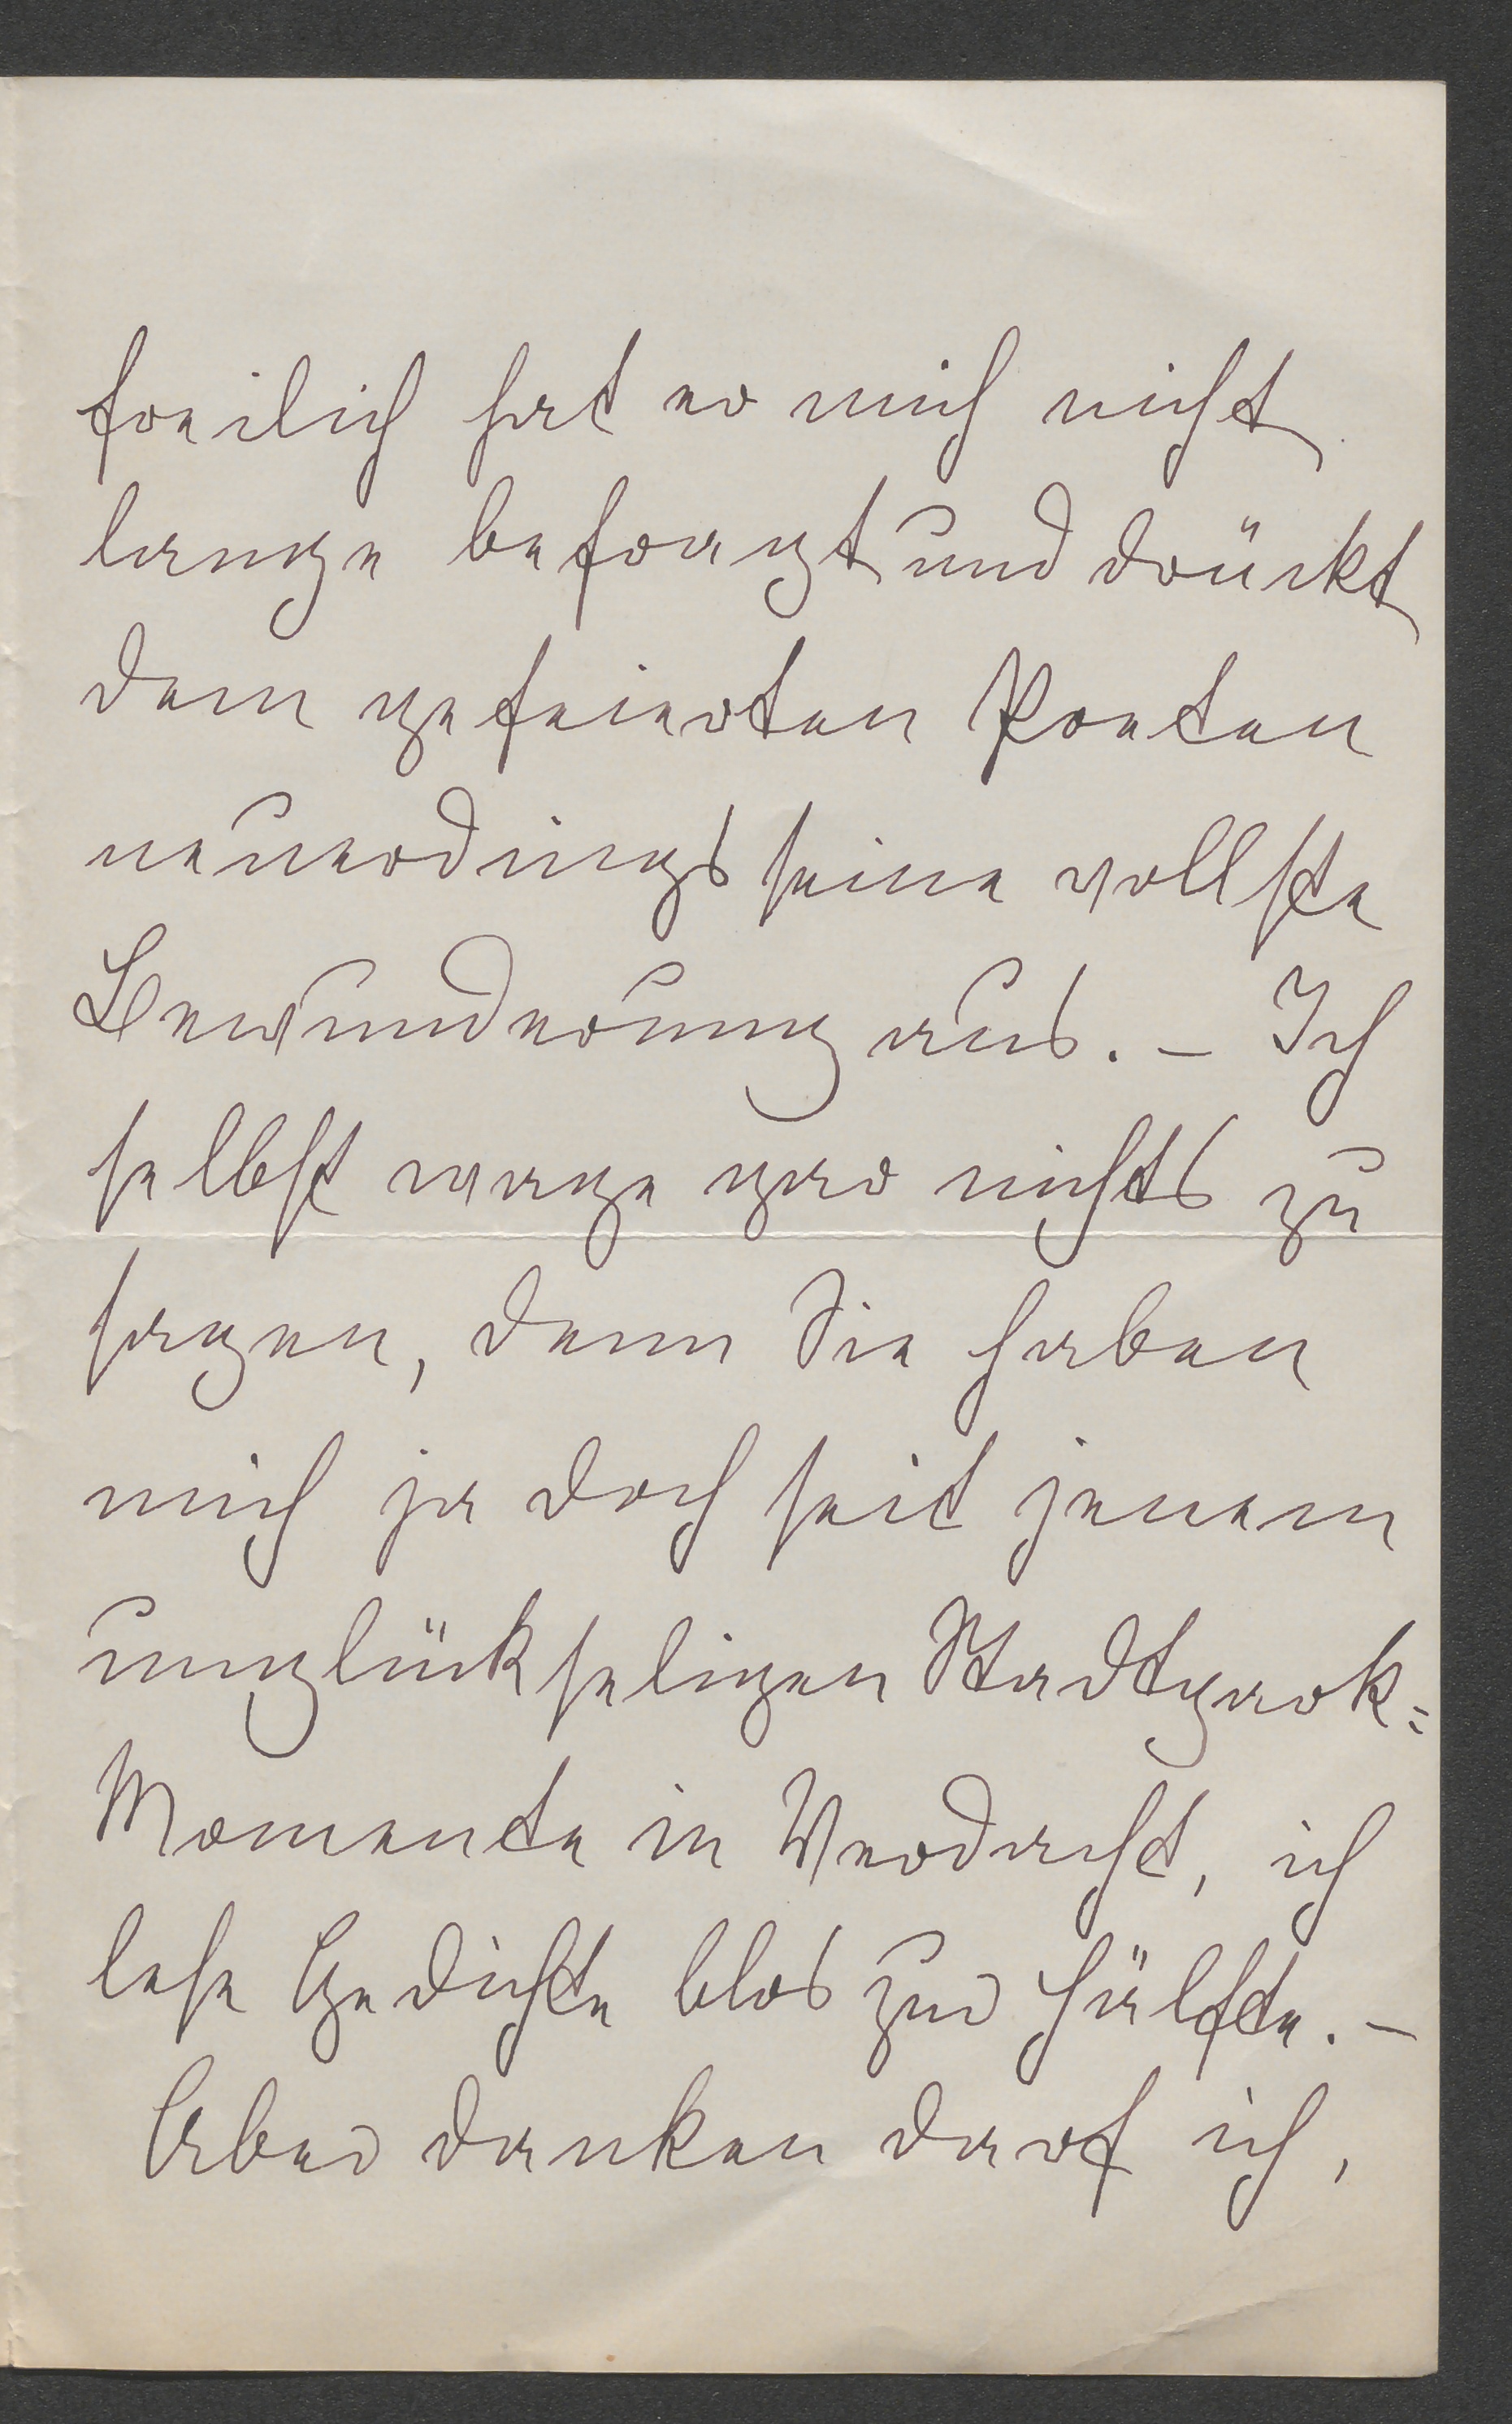 freilich hat er mich nicht
lange befragt und drückt
dem gefeierten Poeten
neuerdings seine vollste
Bewunderung aus. – Ich
selbst wage gar nichts zu
sagen, denn Sie haben
mich ja doch seit jenem
unglückseligen Stadtpark=
Momente in Verdacht, ich
lese Gedichte blos zur Hälfte. –
Aber danken darf ich,